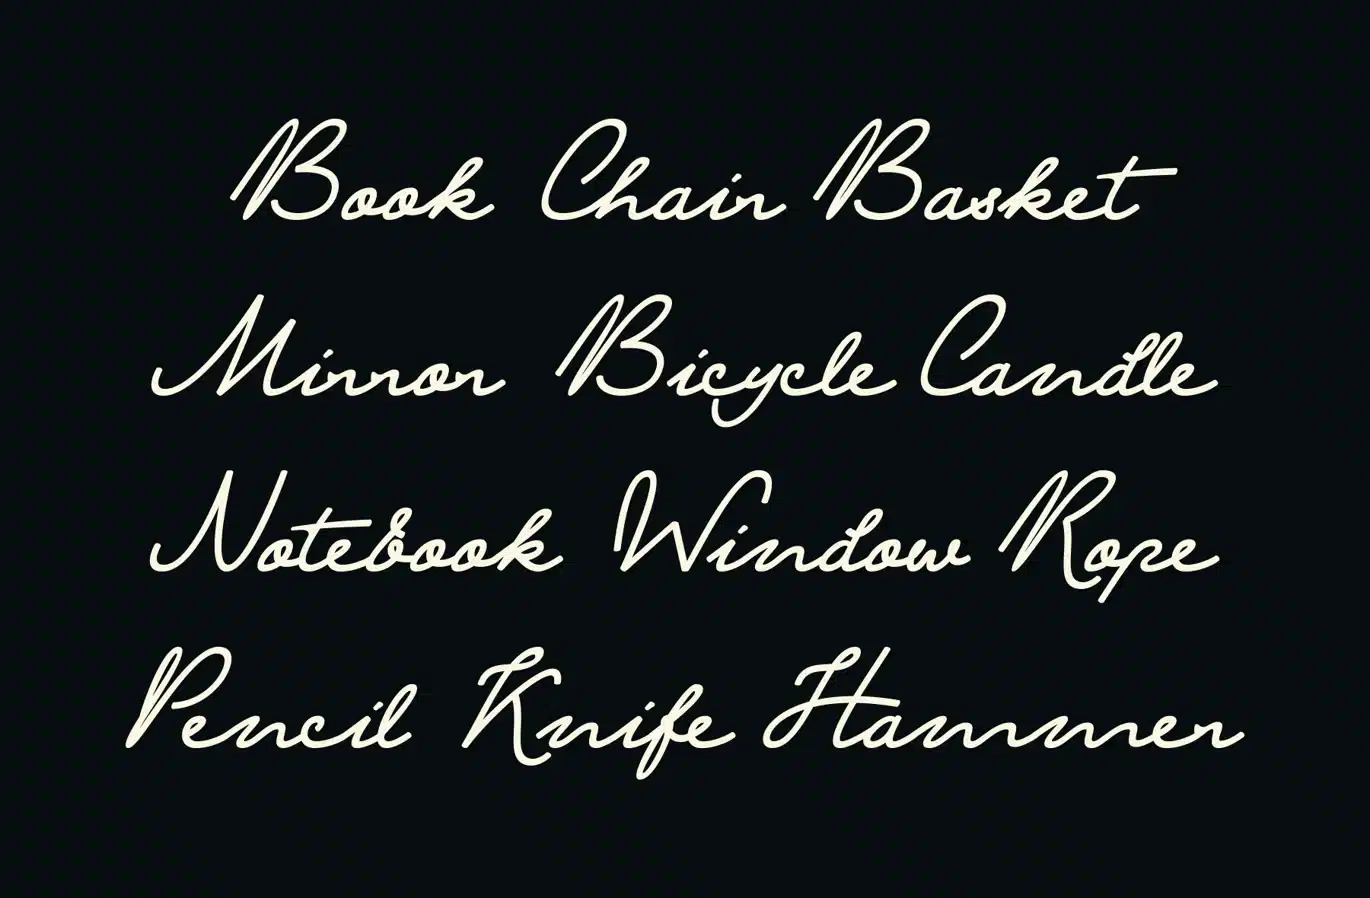 Book Chain Basket
Mirror Bicycle Candle
Notebook Window Rope
Pencil Knife Hammer